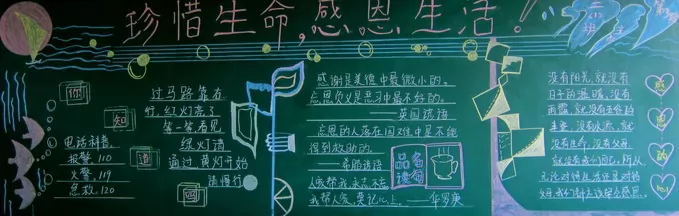 珍惜生命,感恩生活!
你
知
道
吗
电话科普
报警 110
火警 119
急救 120
过马路靠右
行,红灯亮了
等一等看见
绿灯请
通过 黄灯开始
请慢行
感谢是美德中最微小的。
忘恩负义是恶习中最不好的。
——英国谚语
忘恩的人落在困难中是不能
得到救助的。
——希腊谚语
人家帮我,永志不忘
我帮人家,莫记心上。
——华罗庚
名句
品读
没有阳光,就没有
日子的温暖,没有
雨露,就没有五谷的
丰登,没有水源,就
没有生命,没有父母,
就没有我们自己,所以
无论对待生活还是对待
父母,我们都应该学会感恩。
感
恩
的
心